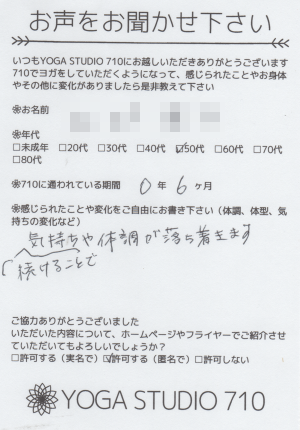 お声をお聞かせ下さい
いつもYOGA STUDIO 710にお越しいただきありがとうございます
710でヨガをしていただくようになって、感じられたことやお身体
やその他に変化がありましたら是非教えて下さい
❀お名前
❀年代
□未成年 □20代 □30代 □40代 ☑50代 □60代 □70代
□80代
❀710に通われている期間 0 年 6 ヶ月
❀感じられたことや変化をご自由にお書き下さい（体調、体型、気
持ちの変化など）
気持ちや体調が落ち着きます
続けることで
ご協力ありがとうございました
いただいた内容について、ホームページやフライヤーでご紹介させ
ていただいてもよろしいでしょうか？
□許可する（実名で） ☑許可する（匿名で） □許可しない
YOGA STUDIO 710